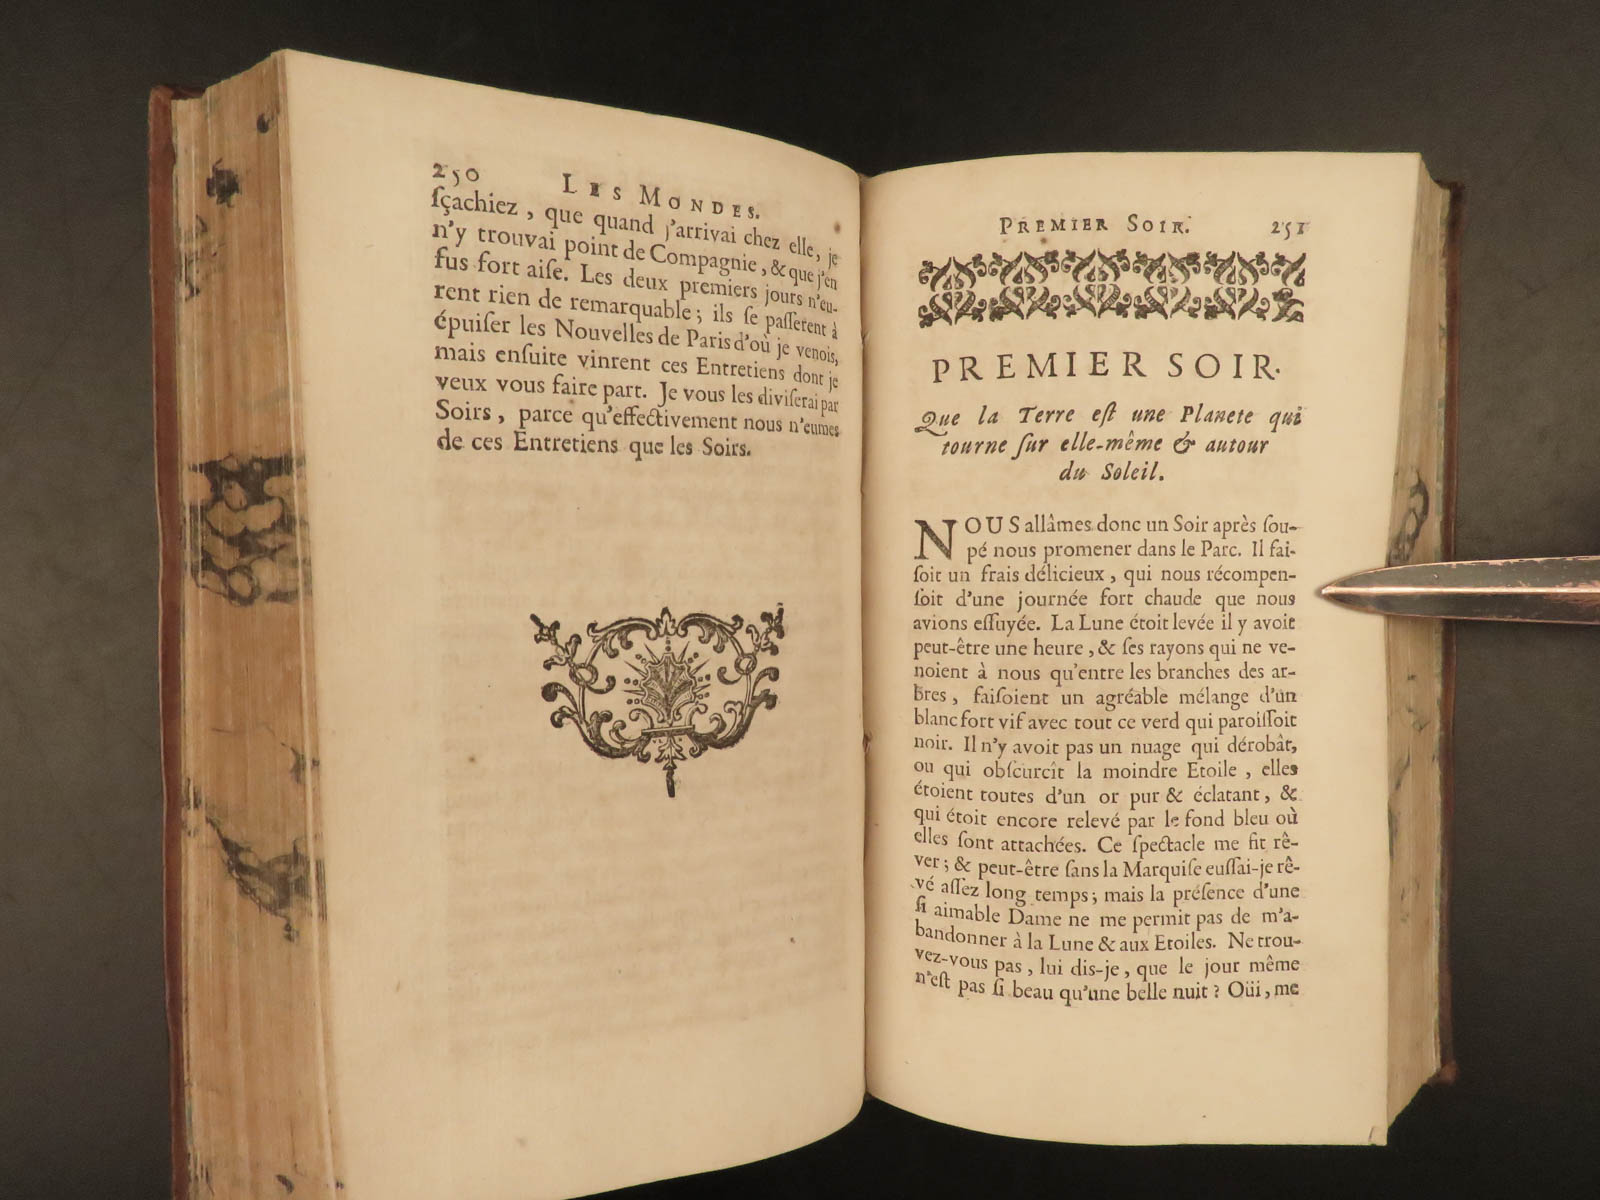 250 LES MONDES.
ſçachiez, que quand j'arrivai chez elle, je
n'y trouvai point de Compagnie, & que j'en
fus fort aiſe. Les deux premiers jours n'eu-
rent rien de remarquable; ils ſe paſſerent à
épuiſer les Nouvelles de Paris d'où je venois,
mais enſuite vinrent ces Entretiens dont je
veux vous faire part. Je vous les diviſerai par
Soirs, parce qu'effectivement nous n'eumes
de ces Entretiens que les Soirs.
PREMIER SOIR. 251
PREMIER SOIR.
Que la Terre eſt une Planete qui
tourne ſur elle-même & autour
du Soleil.
NOUS allâmes donc un Soir après ſou-
pé nous promener dans le Parc. Il fai-
ſoit un frais délicieux, qui nous récompen-
ſoit d'une journée fort chaude que nous
avions eſſuyée. La Lune étoit levée il y avoit
peut-être une heure, & ſes rayons qui ne ve-
noient à nous qu'entre les branches des ar-
bres, faiſoient un agréable mélange d'un
blanc fort vif avec tout ce verd qui paroiſſoit
noir. Il n'y avoit pas un nuage qui dérobât,
ou qui obſcurcît la moindre Etoile, elles
étoient toutes d'un or pur & éclatant, &
qui étoit encore relevé par le fond bleu où
elles ſont attachées. Ce ſpectacle me fit rê-
ver; & peut-être ſans la Marquiſe euſſai-je rê-
vé aſſez long temps; mais la préſence d'une
ſi aimable Dame ne me permit pas de m'a-
bandonner à la Lune & aux Etoiles. Ne trou-
vez-vous pas, lui dis-je, que le jour même
n'eſt pas ſi beau qu'une belle nuit? Oüi, me